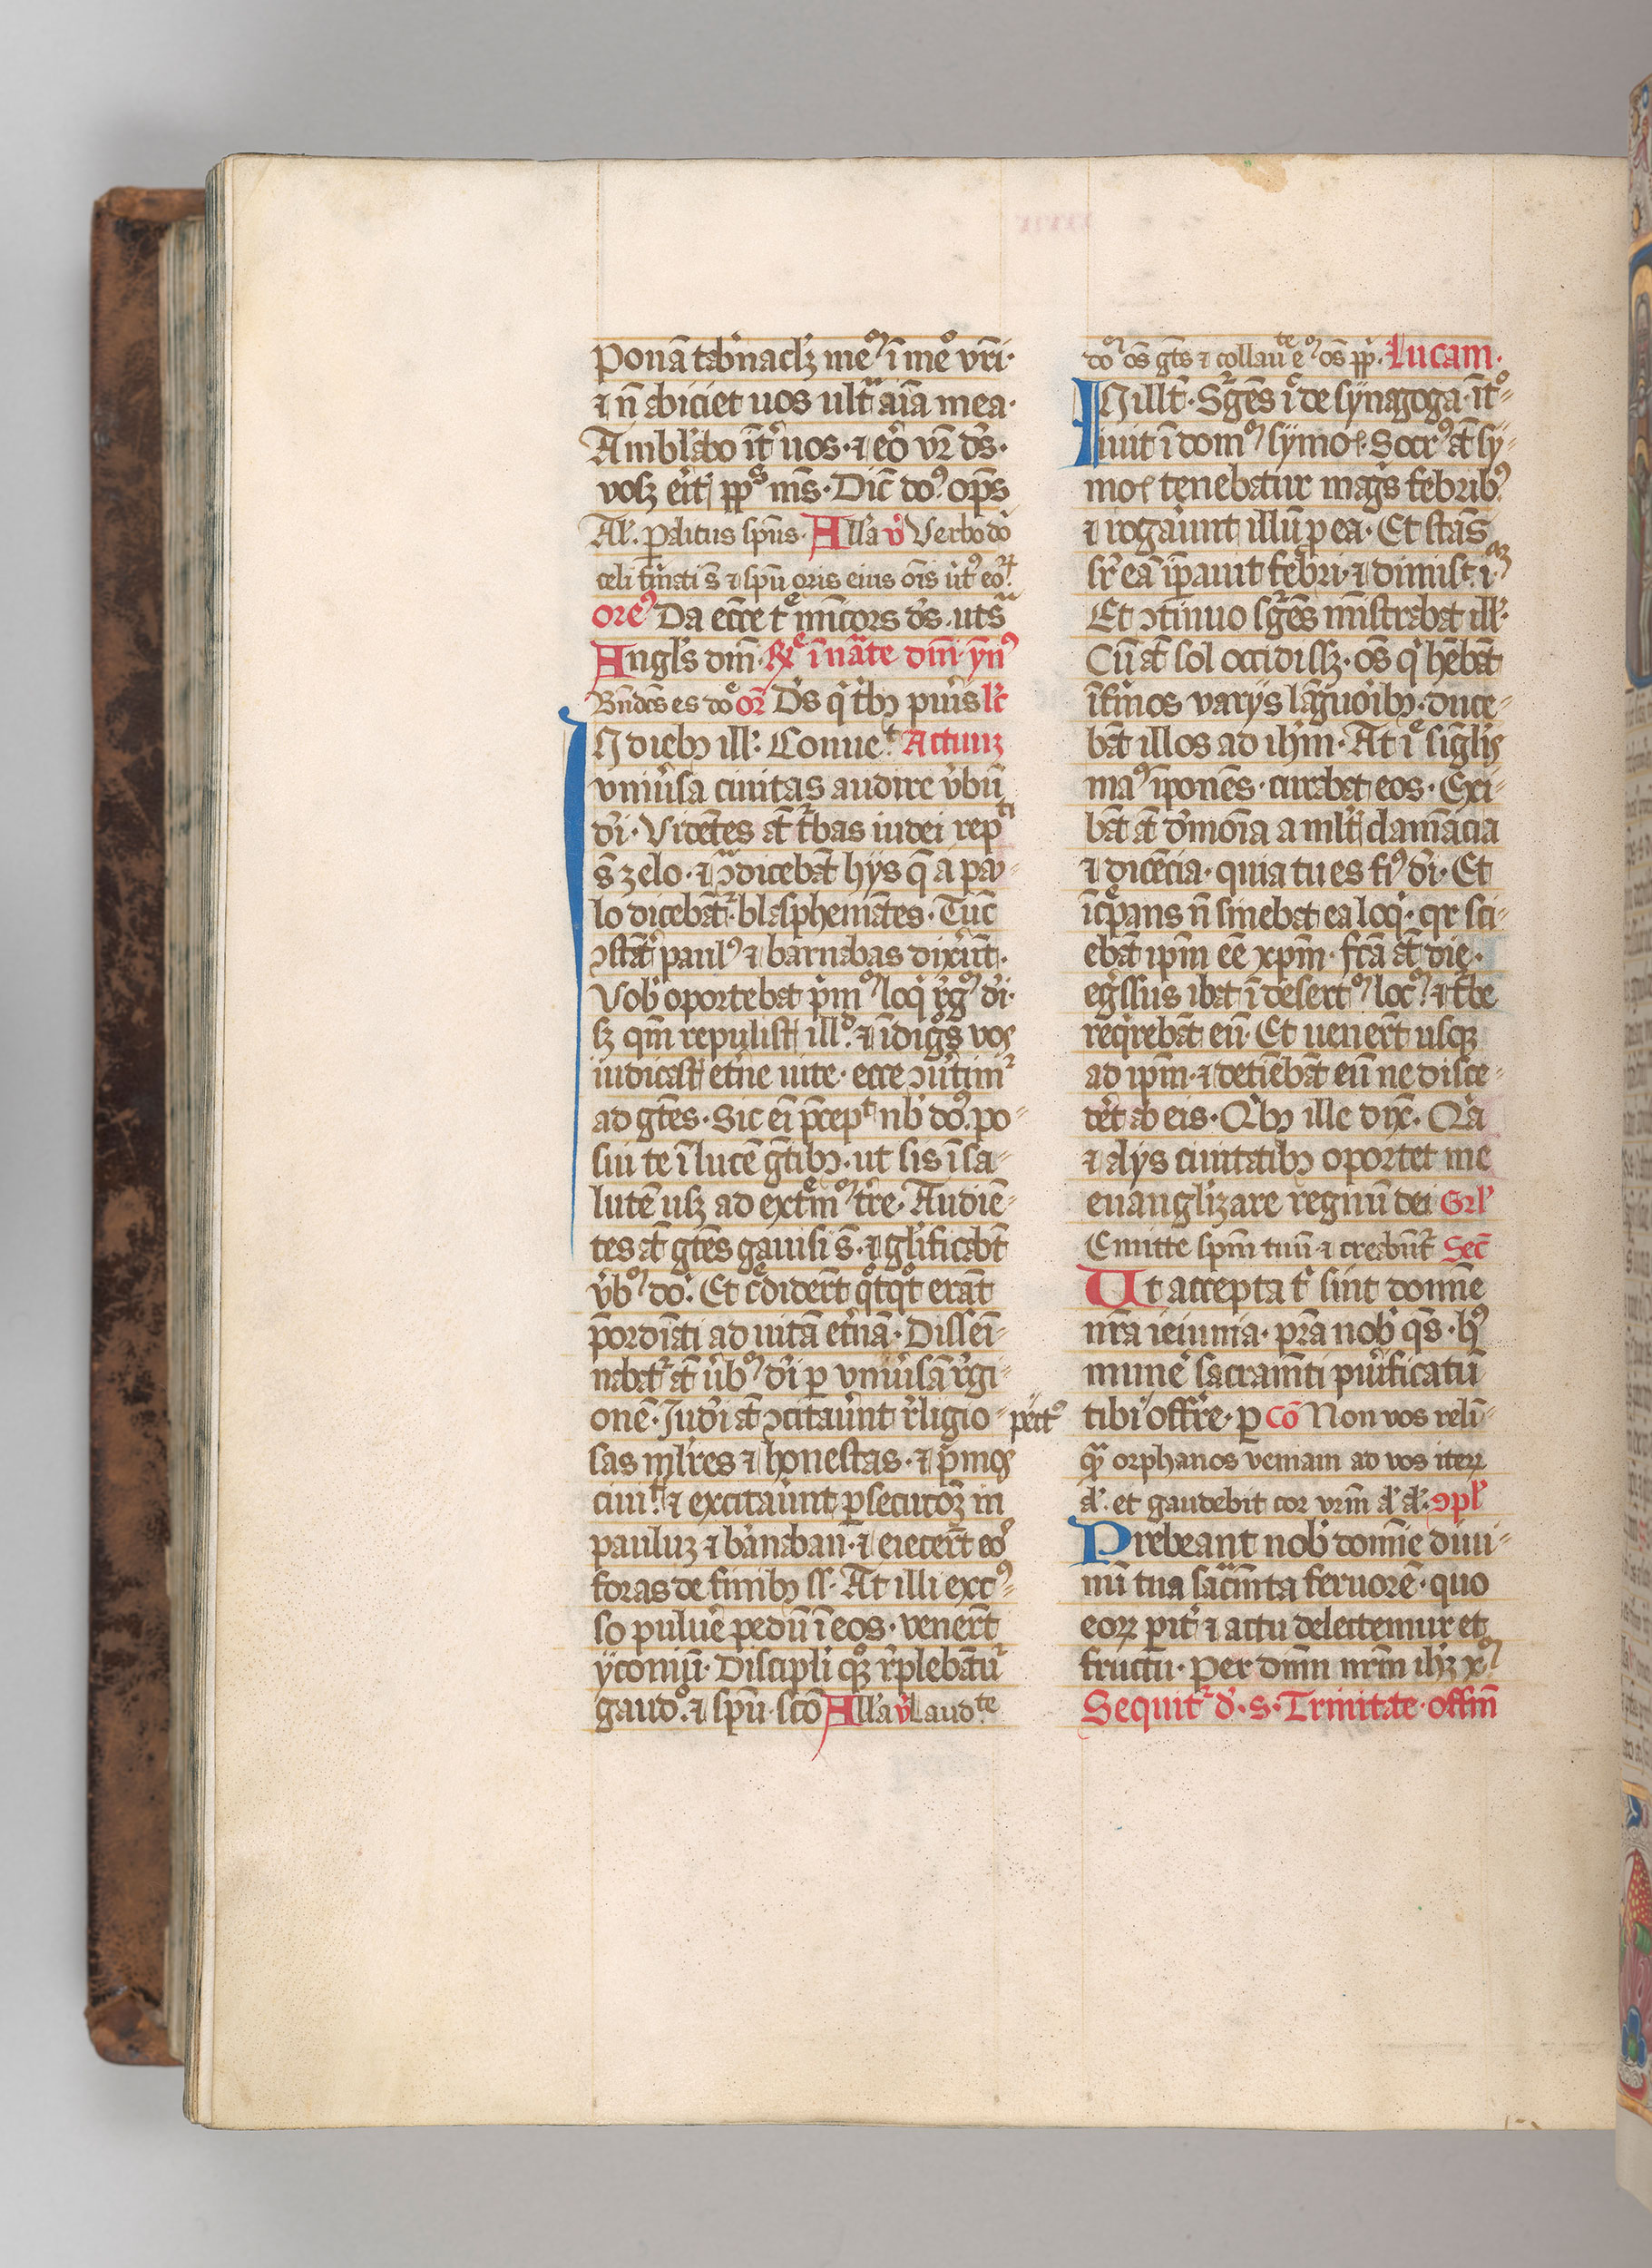 Ponā tab̓nacl̓ꝫ meꝰ ī meͦ vr̄i·
⁊ n̄ abiciet uos ult̄ aīa mea·
Ambl̓abo īt̓ uos· ⁊ eo̓ vr̄ d̄s·
vosꝫ eit̓ pp̄s m̄s· Dic̄ doꝰ op̄s
Al̓· ꝑaclitus sp̄us· All̓a v̓ Verbo do̓
celi f̓mati s̄ ⁊ sp̄u oris eius oīs ùtꝰ eoꝝ
oreꝰ Da ecc̄e tͤ mīcors d̄s· ut sͣ
Angl̓s dn̄i· ℞ͤ ī nat̄e dn̄i· yn̄ꝰ
Bn̄dc̄s es doͤ or̄ D̄s q̓ t̓bꝫ pūis lc̓
N diebꝫ ill̓· Conueᵗ Actuuꝫ
vniu̓sa ciuitas audire v̓bū
dei· Videt̄es at̄ t̓bas iudei repᵗⁱ
s̄ zelo· ⁊ ꝯͣdicebāt hijs q̄ a pau-
lo dicebāt̓· blasphemātes· Tūc
ꝯstāt̓ paulꝰ ⁊ barnabas dixūt̄·
Vob̓ oportebat p̓mꝰ loq̓ v̓gꝰ di̓·
sꝫ qm̄ repulist̓ illͦ· ⁊ īdigͦs vos
iudicast̓ et̓ne uite· ecce ꝯu̓tim̓
ad gt̄es· Sic ei̓ p̄cepᵗ nb̓ doꝰ· po-
sui te ī lucē gt̄ibꝫ· ut sis ī sa-
lutē usꝫ ad extͤmꝰ t̓re· Audiē-
tes at̄ gt̄es gauisi s̄· ⁊ gl̓ificabt̄
v̓bꝰ do̓· Et cͤdider̄t qͦtqͦt erāt
p̄ordīati ad uitā et̓nā· Dissei̓-
nabat̓ at̄ v̓bꝰ di̓ p vniu̓sā r̓gi-
onē· Iudei̓ at̄ ꝯcitaūnt r̓ligio-
sas ml̓ires ⁊ honestas· ⁊ p̓mos
ciuit̓ ⁊ excitaūnt ꝑsecutoꝫ in
pauluꝫ ⁊ ba̓naban· ⁊ eiecer̄t eos
foras de finibꝫ ss· At illi excꝰ-
so pulue̓ pedū ī eos· vener̄t
yconiū· Discipli̓ qͦꝫ r̓plebātu̓
gaudͦ· ⁊ sp̄u sc̄o All̓a v̓ Laudᵗᵉ
doꝰ os̄ gt̄s ⁊ collauᵗᵉ eꝰ os̄ pp̓· Lucam·
N illt̄· Su̓gēs iͨ de synagoga· īt̓ͦ-
iuit ī domꝰ symoꝭ· Socrꝰ at̄ sy-
moꝭ tenebatur mag̓s febribꝰ
⁊ rogaūnt illū p ea· Et stās
sr̓ eā īꝑauit febri· ⁊ dimist̓ iꝫ
Et ꝯtinuo sg̓ēs mīstrabat ill̓·
Cū at̄ sol occidissꝫ· os̄ q̓ hēbāt
īf̓mos varijs lāguo̓ibꝫ· duce-
bāt illos ad ih̄m· At iͤ sigl̓is
maꝰ īponēs· curabat eos· Exi-
bāt at̄ d̓monia a mlt̓ clamācia
⁊ dicēcia· quia tu es fiꝰ di̓· Et
īcͤpans n̄ sinebat ea loq̓· qr sci-
ebāt ip̄m eē xp̄m· fc̄ā at̄ die·
eg̓ssus ibat ī desertꝰ locꝰ· ⁊ t̓be
req̓rebāt eū· Et uener̄t usqꝫ
ad ip̄m· ⁊ detīebāt eū ne disce-
det̓ ab eis· Q̓bꝫ ille dix̄· Q̓a
⁊ alijs ciuitatibꝫ oportet me
euangl̓izare regnū dei Grl̓
Emitte sp̄m tuū ⁊ creabūt̓ Sec̄
Ut accepta t̓ sint domīe
nr̄a ieiunia· pr̄a nob̓ qs̄· hꝰ
mune̓ sacramīti puifi̓catū
pectͦ
tibi offr̓e· ꝑ Cō Non vos reli̓n-
quā orphanos veniam ad vos iteꝝ
al̓· et gaudebit cor vr̄m al̓ al̓· ꝯpl̓
Prebeant nob̓ domīe diui-
nū tua sac̄mīta feruorē· quo
eoꝝ pit̓ ⁊ actu delectemur et
fructu· Per dnm̄ nr̄m ih̄ꝫ xꝰ
Sequit̓ d̓· s· Trinitate· offm̄